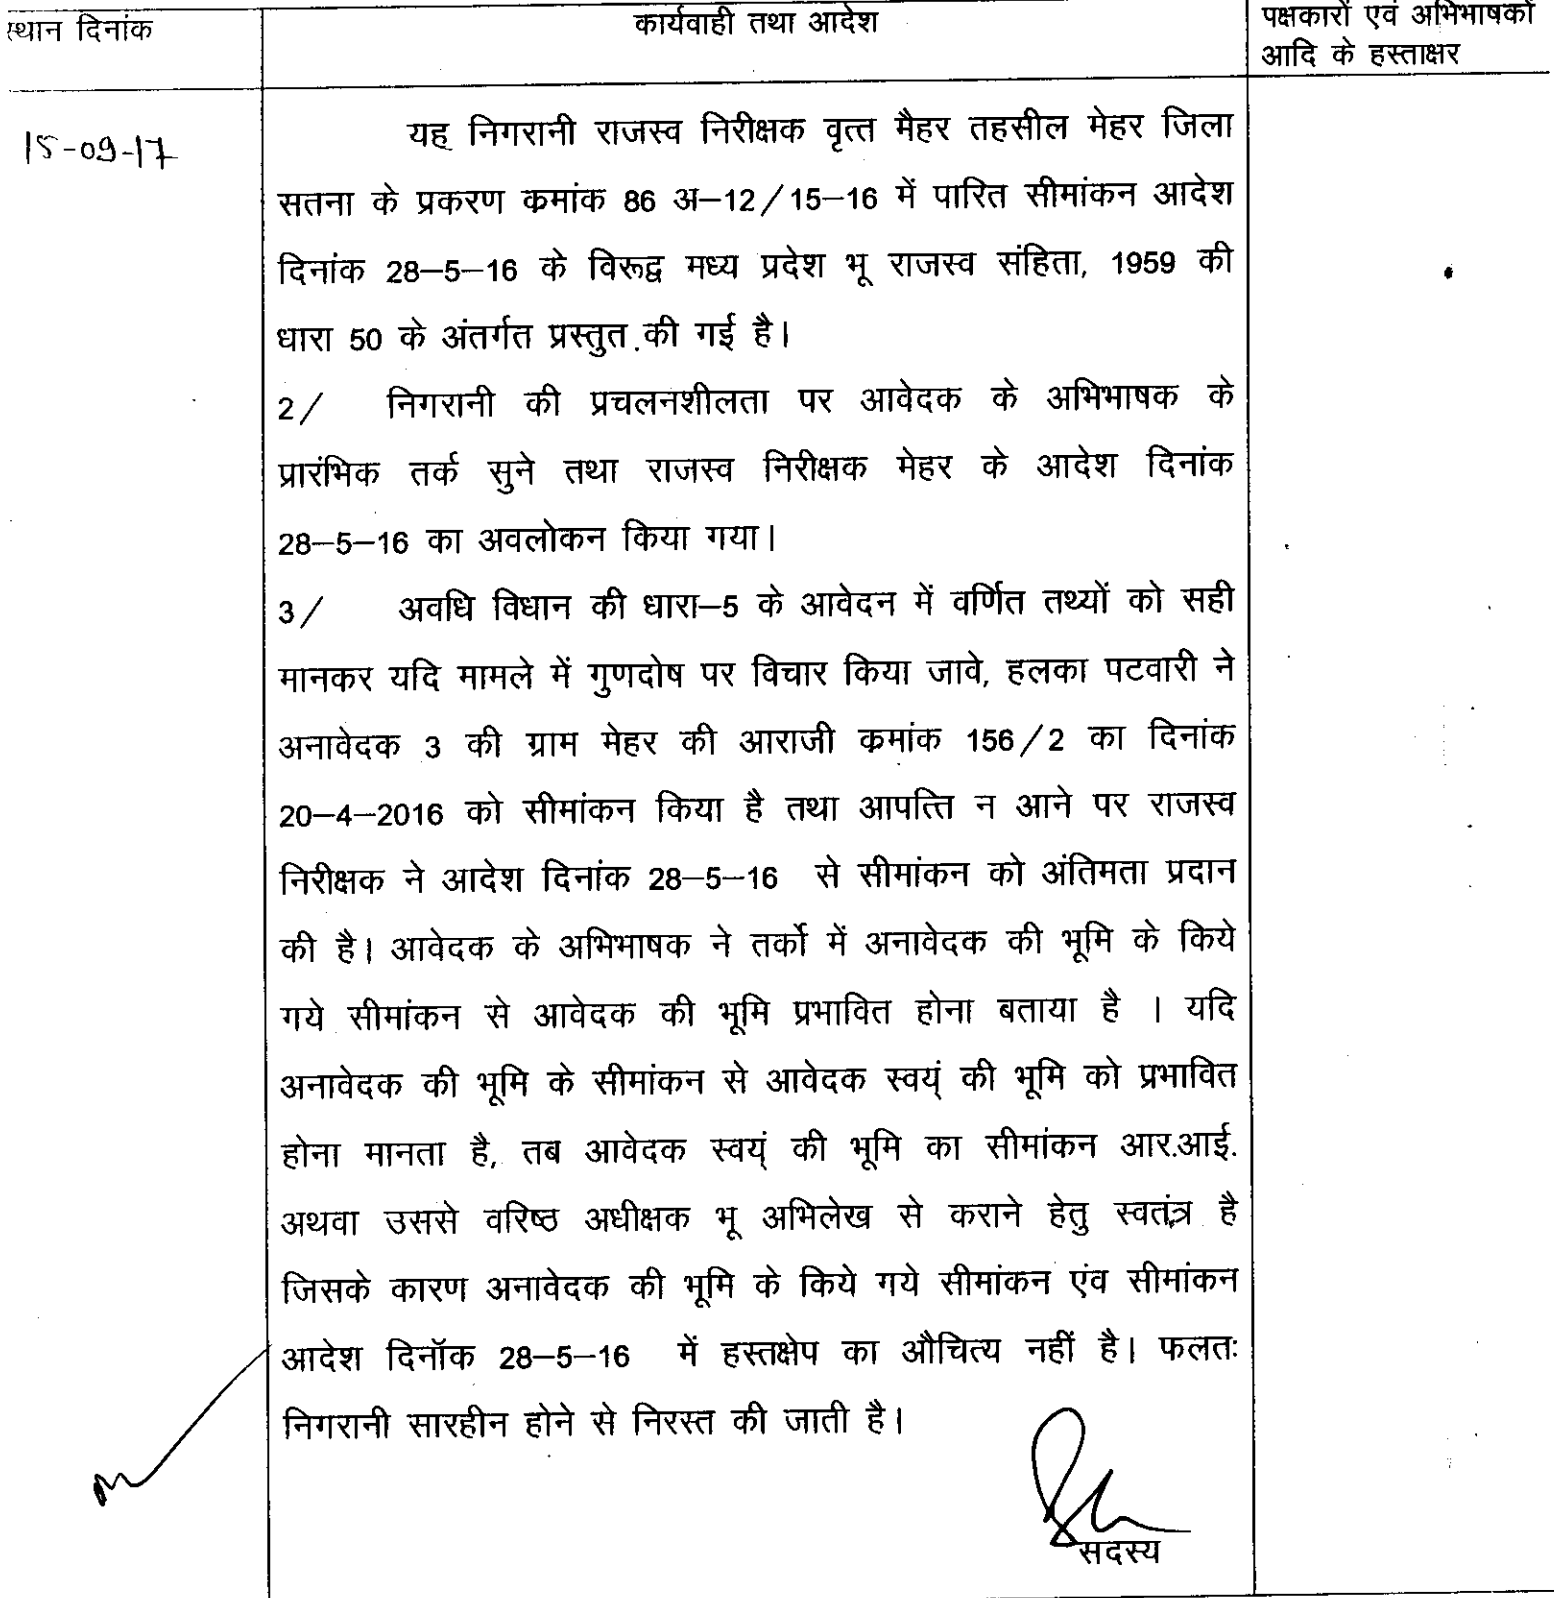 स्थान दिनांक
कार्यवाही तथा आदेश
पक्षकारों एवं अभिभाषकों
आदि के हस्ताक्षर
15-09-17
यह निगरानी राजस्व निरीक्षक वृत्त मैहर तहसील मेहर जिला
सतना के प्रकरण कमांक 86 अ–12/15–16 में पारित सीमांकन आदेश
दिनांक 28–5–16 के विरूद्व मध्य प्रदेश भू राजस्व संहिता, 1959 की
धारा 50 के अंतर्गत प्रस्तुत की गई है।
2/ निगरानी की प्रचलनशीलता पर आवेदक के अभिभाषक के
प्रारंभिक तर्क सुने तथा राजस्व निरीक्षक मेहर के आदेश दिनांक
28–5–16 का अवलोकन किया गया।
3/ अवधि विधान की धारा–5 के आवेदन में वर्णित तथ्यों को सही
मानकर यदि मामले में गुणदोष पर विचार किया जावे, हलका पटवारी ने
अनावेदक 3 की ग्राम मेहर की आराजी कमांक 156/2 का दिनांक
20–4–2016 को सीमांकन किया है तथा आपत्ति न आने पर राजस्व
निरीक्षक ने आदेश दिनांक 28–5–16 से सीमांकन को अंतिमता प्रदान
की है। आवेदक के अभिभाषक ने तर्को में अनावेदक की भूमि के किये
गये सीमांकन से आवेदक की भूमि प्रभावित होना बताया है । यदि
अनावेदक की भूमि के सीमांकन से आवेदक स्वयं की भूमि को प्रभावित
होना मानता है, तब आवेदक स्वयं की भूमि का सीमांकन आर.आई.
अथवा उससे वरिष्ठ अधीक्षक भू अभिलेख से कराने हेतु स्वतंत्र है
जिसके कारण अनावेदक की भूमि के किये गये सीमांकन एंव सीमांकन
आदेश दिनॉक 28–5–16 में हस्तक्षेप का औचित्य नहीं है। फलतः
निगरानी सारहीन होने से निरस्त की जाती है।
सदस्य